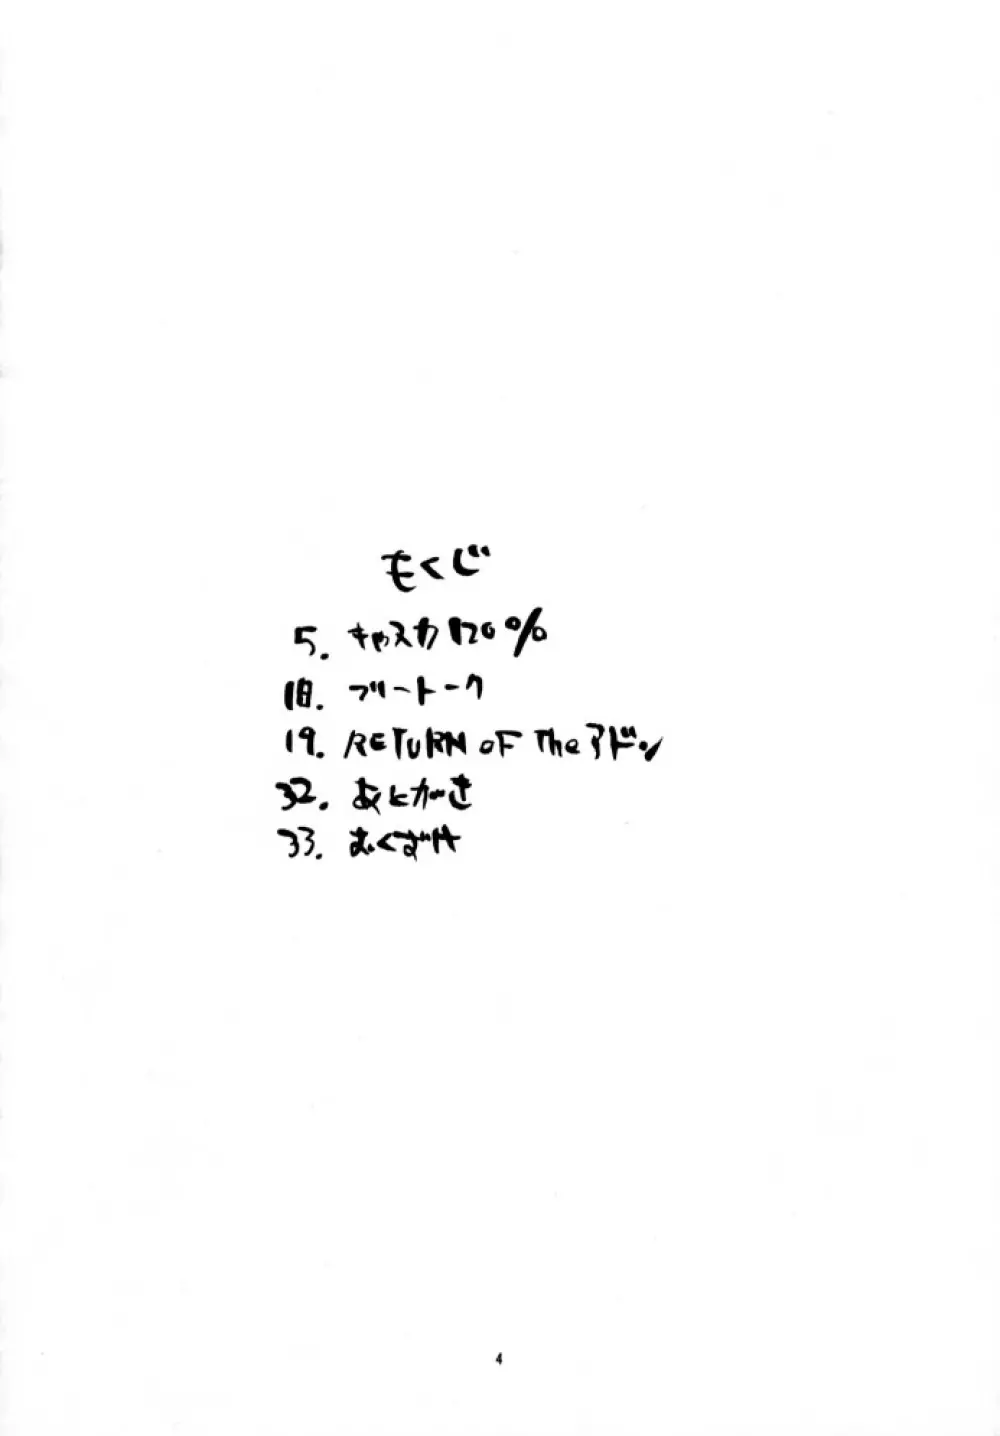 もくじ
5. キャスカ120%
18. フリートーク
19. RETURN OF The アドン
32. あとがき
33.
4